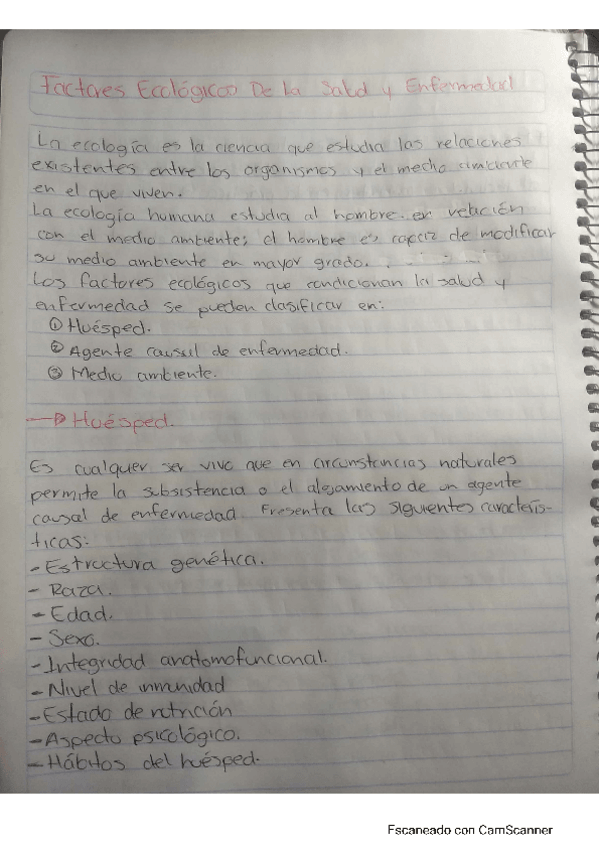 Factores Ecológicos De la Salud y Enfermedad
La ecología es la ciencia que estudia las relaciones
existentes entre los organismos y el medio ambiente
en el que viven.
La ecología humana estudia al hombre en relación
con el medio ambiente; el hombre es capaz de modificar
su medio ambiente en mayor grado.
Los factores ecológicos que condicionan la salud y
enfermedad se pueden clasificar en:
① Huésped.
② Agente causal de enfermedad.
③ Medio ambiente.
→ Huésped.
Es cualquier ser vivo que en circunstancias naturales
permite la subsistencia o el alojamiento de un agente
causal de enfermedad. Presenta las siguientes caracterís-
ticas:
- Estructura genética.
- Raza.
- Edad.
- Sexo.
- Integridad anatomofuncional.
- Nivel de inmunidad
- Estado de nutrición
- Aspecto psicológico.
- Hábitos del huésped.
Escaneado con CamScanner